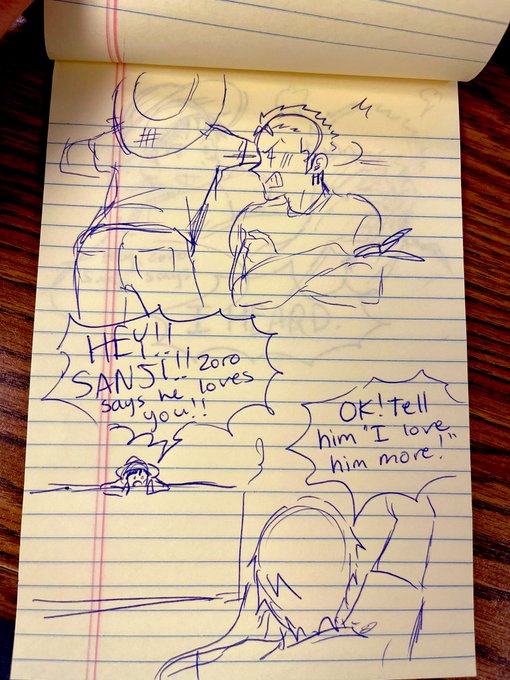 HEY!!
SANJI!! Zoro
says he loves
you!!
OK! Tell
him "I love
him more!"